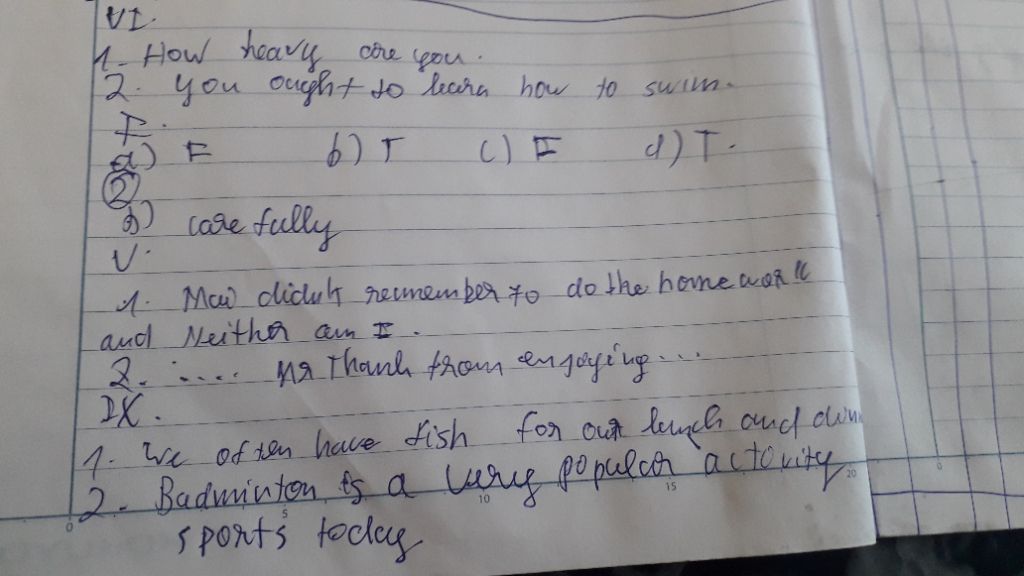 VI.
1. How heavy are you.
2. You ought to learn how to swim.
I.
a) F b) T c) F d) T.
②
a) carefully
V.
1. Mai didn't remember to do the homework
and Neither am I.
2. ..... Mr Thanh from enjoying...
IX.
1. We often have fish for our lunch and
2. Badminton is a very popular activity
sports today
0 5 10 15 20
0